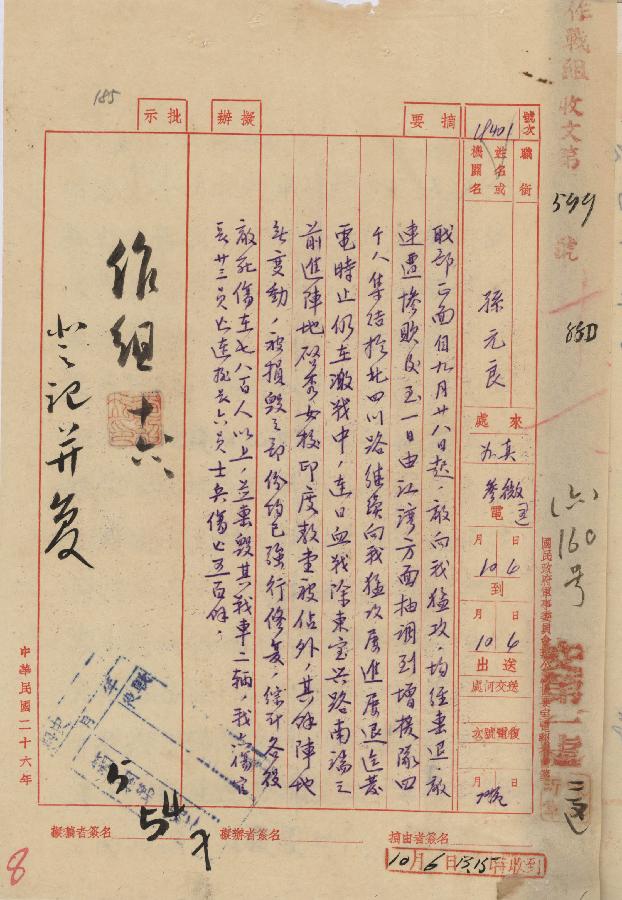 作戰組收文第
599
號
號次
18401
職銜
姓名或
機關名
孫元良
來處
電
月 日
10 6
到
月 日
10 6
送出
送交何處
復電號次
月 日
摘要
職部正面自九月廿八日起,敵向我猛攻,均經擊退,敵
連遭慘敗後至一日由江灣方面抽調到增援隊四
千人集結於北四川路繼續向我猛攻屢進屢退迄發
電時止仍在激戰中,連日血戰除東寶興路南端之
前進陣地啓秀女校印度教堂被佔外,其餘陣地
無變動,被損毀之部份均已強行修復,綜計各役
敵死傷在七八百人以上,並擊毀其戰車二輛,我亡傷官
長廿三員亡連排長六員士兵傷亡五百餘,
擬辦
批示
作組
十六
登記并复
185
160号
中華民國二十六年
擬稿者簽名
擬辦者簽名
摘由者簽名
10月6日15.15時收到
8